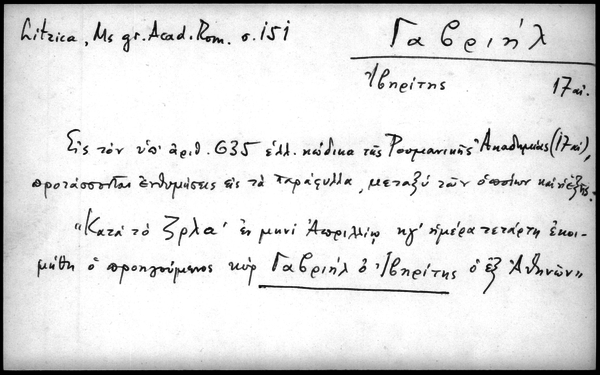 Litzica, Ms gr. Acad. Rom. σ. 151
Γαβριήλ
Ἰβηρίτης 17 αἰ.
Εἰς τὸν ὑπ' ἀριθ. 635 ἑλλ. κώδικα τῆς Ρουμανικῆς Ἀκαδημίας (17 αἰ),
προτάσσονται ἐνθυμήσεις εἰς τὰ παράφυλλα, μεταξύ τῶν ὁποίων καὶ ἡ ἑξῆς.
"Κατὰ τὸ ζρλα' ἐν μηνὶ Ἀπριλλίῳ κη' ἡμέρα τετάρτη ἐκοι-
μήθη ὁ προηγούμενος κύρ Γαβριήλ ὁ Ἰβηρίτης ὁ ἐξ Ἀθηνῶν"